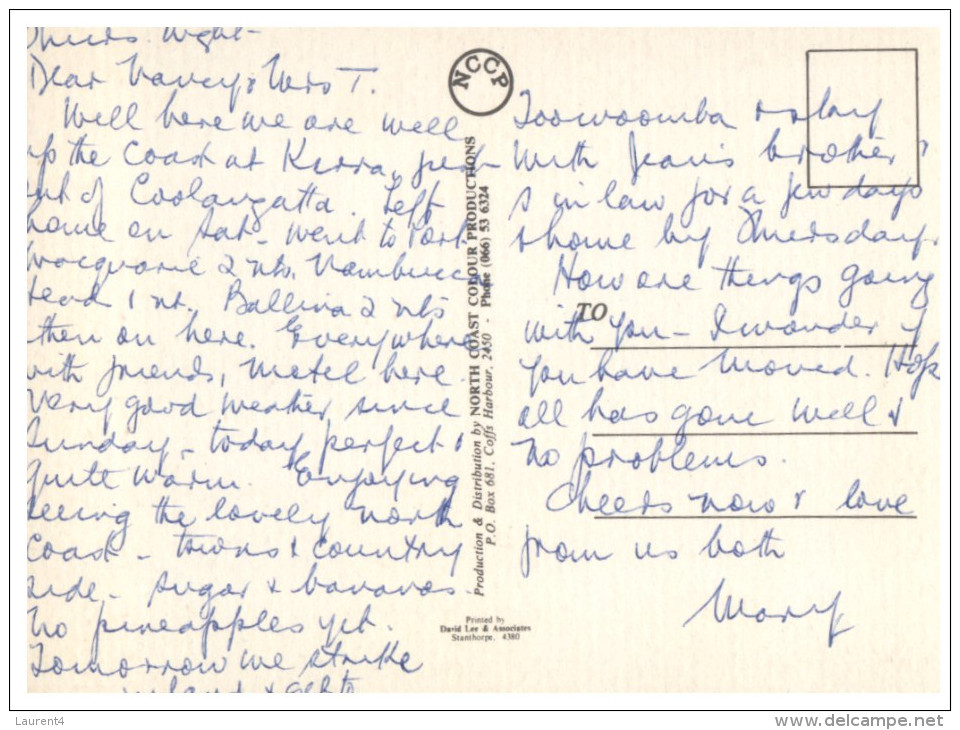 Thurs. night -
Dear Nancy & Mrs T.
Well here we are well
up the coast at Kirra, just
out of Coolangatta. Left
home on Sat - went to Port
Macquarie 2 nts. Nambucca
Head 1 nt. Ballina 2 nts
then on here. Everywhere
with friends, Motel here.
Very good weather since
Sunday - today perfect &
quite warm. Enjoying
seeing the lovely north
coast - towns & country
side - sugar & bananas.
No pineapples yet.
Tomorrow we strike
inland & get to
NCCP
Production & Distribution by NORTH COAST COLOUR PRODUCTIONS
P.O. Box 681, Coffs Harbour, 2450 - Phone (066) 53 6324
Printed by
David Lee & Associates
Stanthorpe, 4380
Toowoomba & stay
with Jean's brother &
s in law for a few days
& home by Thursday.
How are things going
TO
with you - I wonder if
you have moved. Hope
all has gone well &
no problems.
Cheers now & love
from us both
Mary
Laurent4
www.delcampe.net